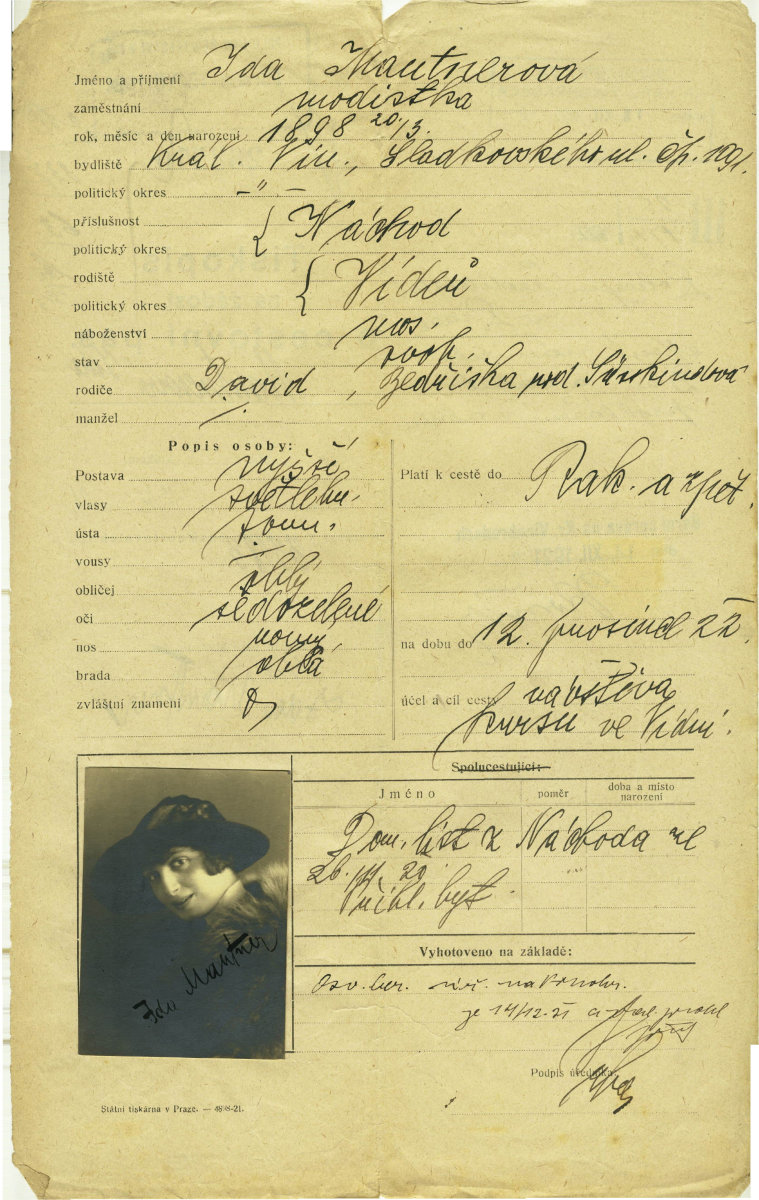 Jméno a příjmení Ida Mautnerová
zaměstnání modistka
rok, měsíc a den narození 1898 20/3.
bydliště Král. Vin., Sladkovského ul. čp.
politický okres –"–
příslušnost
politický okres { Náchod
rodiště
politický okres { Vídeň
náboženství mos.
stav svob.
rodiče David, Bedřiška rod. Süsskindová
manžel /.
Popis osoby:
Postava vyšší
vlasy světlehn.
ústa
vousy –
obličej oblý
oči šedozelené
nos
brada oblá
zvláštní znamení
Platí k cestě do Rak. a zpět.
na dobu do 12. prosince 22.
účel a cíl cesty návštěva
kursu ve Vídni.
Spolucestující:
Jméno
poměr
doba a místo
narození
Dom. list z Náchoda ze
Přihl. byt.
Vyhotoveno na základě:
Osv. ber.
ze 14/12.21 a
Podpis úředníka:
Ida Mautner
Státní tiskárna v Praze. — 4898-21.